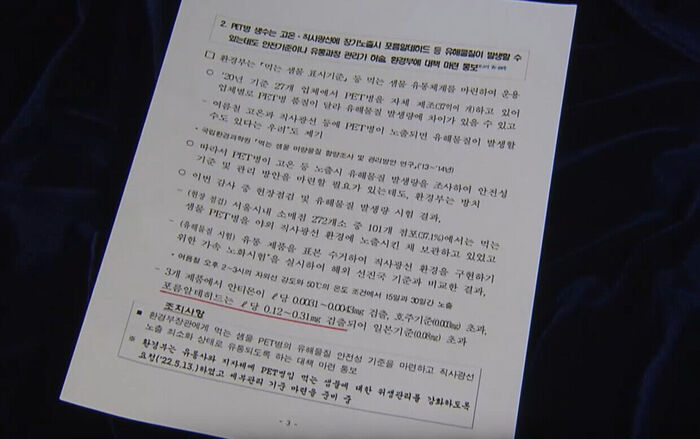 2. PET병 생수는 고온·직사광선에 장기노출시 포름알데히드 등 유해물질이 발생할 수
있는데도 안전기준이나 유통과정 관리가 허술, 환경부에 대책 마련 통보
□ 환경부는 『먹는 샘물 표시기준』 등 먹는 샘물 유통체계를 마련하여 운용
○ '20년 기준 27개 업체에서 PET병을 자체 제조(37억여 개)하고 있어
업체별로 PET병 품질이 달라 유해물질 발생량에 차이가 있을 수 있고
- 여름철 고온과 직사광선 등에 PET병이 노출되면 유해물질이 발생할
수도 있다는 우려* 도 제기
* 국립환경과학원 『먹는 샘물 미량물질 함량조사 및 관리방안 연구』('13~'14년)
○ 따라서 PET병이 고온 등 노출시 유해물질 발생량을 조사하여 안전성
기준 및 관리 방안을 마련할 필요가 있는데도, 환경부는 방치
○ 이번 감사 중 현장점검 및 유해물질 발생량 시험 결과,
- (현장 점검) 서울시내 소매점 272개소 중 101개 점포(37.1%)에서는 먹는
샘물 PET병을 야외 직사광선 환경에 노출시킨 채 보관하고 있었고
- (유해물질 시험) 유통 제품을 표본 수거하여 직사광선 환경을 구현하기
위한 가속 노화시험*을 실시하여 해외 선진국 기준과 비교한 결과,
* 여름철 오후 2~3시의 자외선 강도와 50℃의 온도 조건에서 15일과 30일간 노출
- 3개 제품에서 안티몬이 ℓ당 0.0031~0.0043mg 검출, 호주기준(0.003mg) 초과,
포름알데히드는 ℓ당 0.12~0.31mg 검출되어 일본기준(0.08mg) 초과
조치사항
■ 환경부장관에게 먹는 샘물 PET병의 유해물질 안전성 기준을 마련하고 직사광선
노출 최소화 상태로 유통되도록 하는 대책 마련 통보
※ 환경부는 유통사와 지자체에 PET병입 먹는 샘물에 대한 위생관리를 강화하도록
요청('22.5.13.)하였고 세부관리 기준 마련을 준비 중
- 3 -